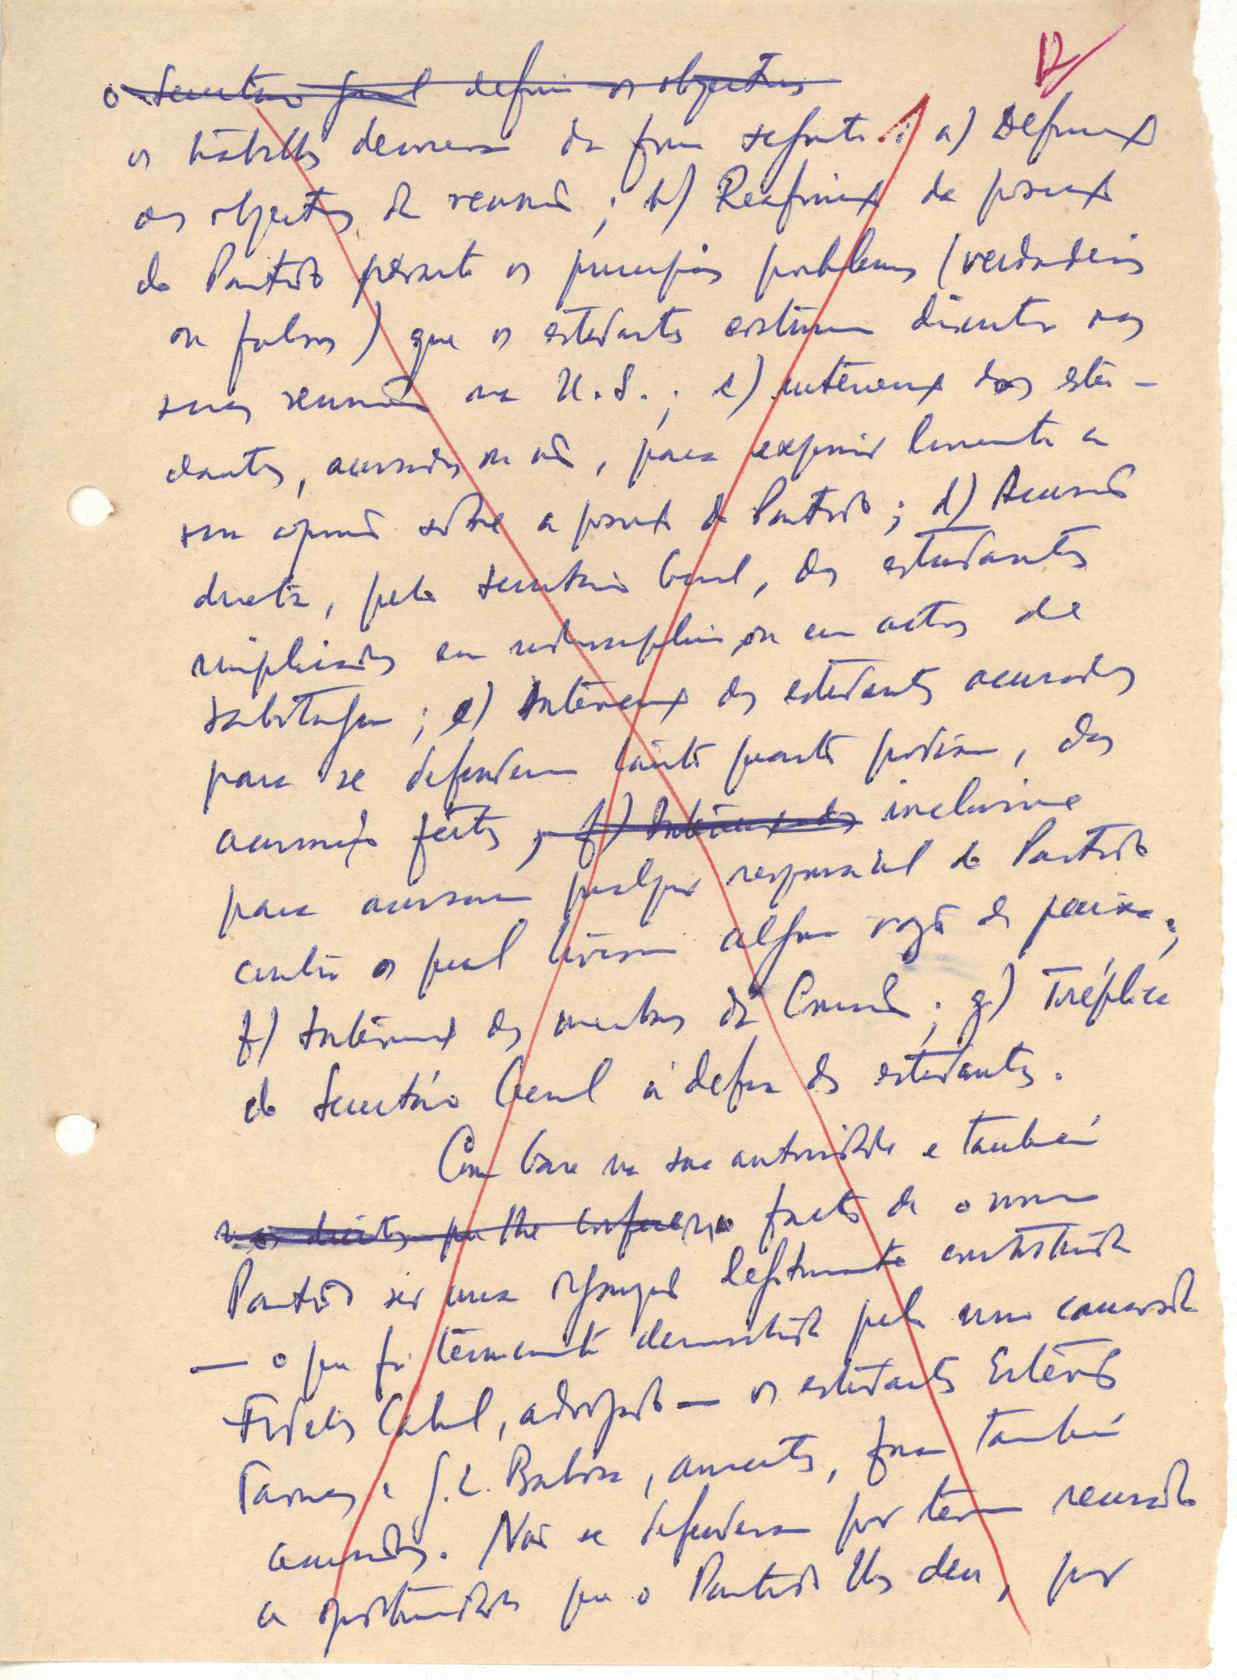 12
o Secretário geral definiu os objectivos
os trabalhos decorreram da forma seguinte: a) Definição
dos objectivos da reunião; b) Reafirmação da posição
do Partido perante os principais problemas (verdadeiros
ou falsos) que os estudantes costumam discutir nas
suas reuniões na U.S.; c) intervenção dos estu-
dantes, acusados ou não, para exporem livremente a
sua opinião sobre a posição do Partido; d) Acusação
directa, pelo Secretário Geral, dos estudantes
implicados em indisciplina ou em actos de
sabotagem; e) Intervenção dos estudantes acusados
para se defenderem tanto quanto podiam, das
acusações feitas, f) Intervenção dos inclusive
para acusarem qualquer responsável do Partido
contra o qual tivessem alguma razão de queixa;
f) Intervenção dos membros da Comissão; g) Tréplica
do Secretário Geral à defesa dos estudantes.
Com base na sua autoridade e também
nos direitos que lhe confere no facto de o nosso
Partido ser uma organização legitimamente constituída
— o que foi demonstrado pelo nosso camarada
Fidelis Cabral, advogado — os estudantes Estêvão
Tavares e J. L. Barbosa, ausentes, foram também
acusados. Não se defenderam por terem recusado
a oportunidade que o Partido lhes deu, por